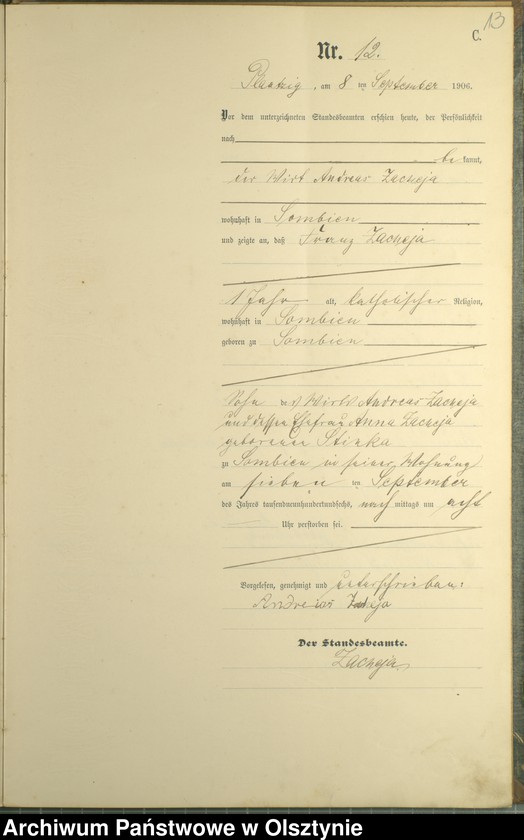 13
C.
Nr. 12.
am 8 ten September 1906.
Vor dem unterzeichneten Standesbeamten erschien heute, der Persönlichkeit
nach
be kannt,
der Wirt Andreas Zacheja
wohnhaft in Sombien
und zeigte an, daß Franz Zacheja
1 Jahr alt, katholischer Religion,
wohnhaft in Sombien
geboren zu Sombien
Sohn des Wirts Andreas Zacheja
und dessen Ehefrau Anna Zacheja
geborenen
zu Sombien in seiner Wohnung
am sieben ten September
des Jahres tausendneunhundertundsechs, nach mittags um acht
Uhr verstorben sei.
Vorgelesen, genehmigt und unterschrieben:
Andreas
Der Standesbeamte.
Zacheja
Archiwum Państwowe w Olsztynie